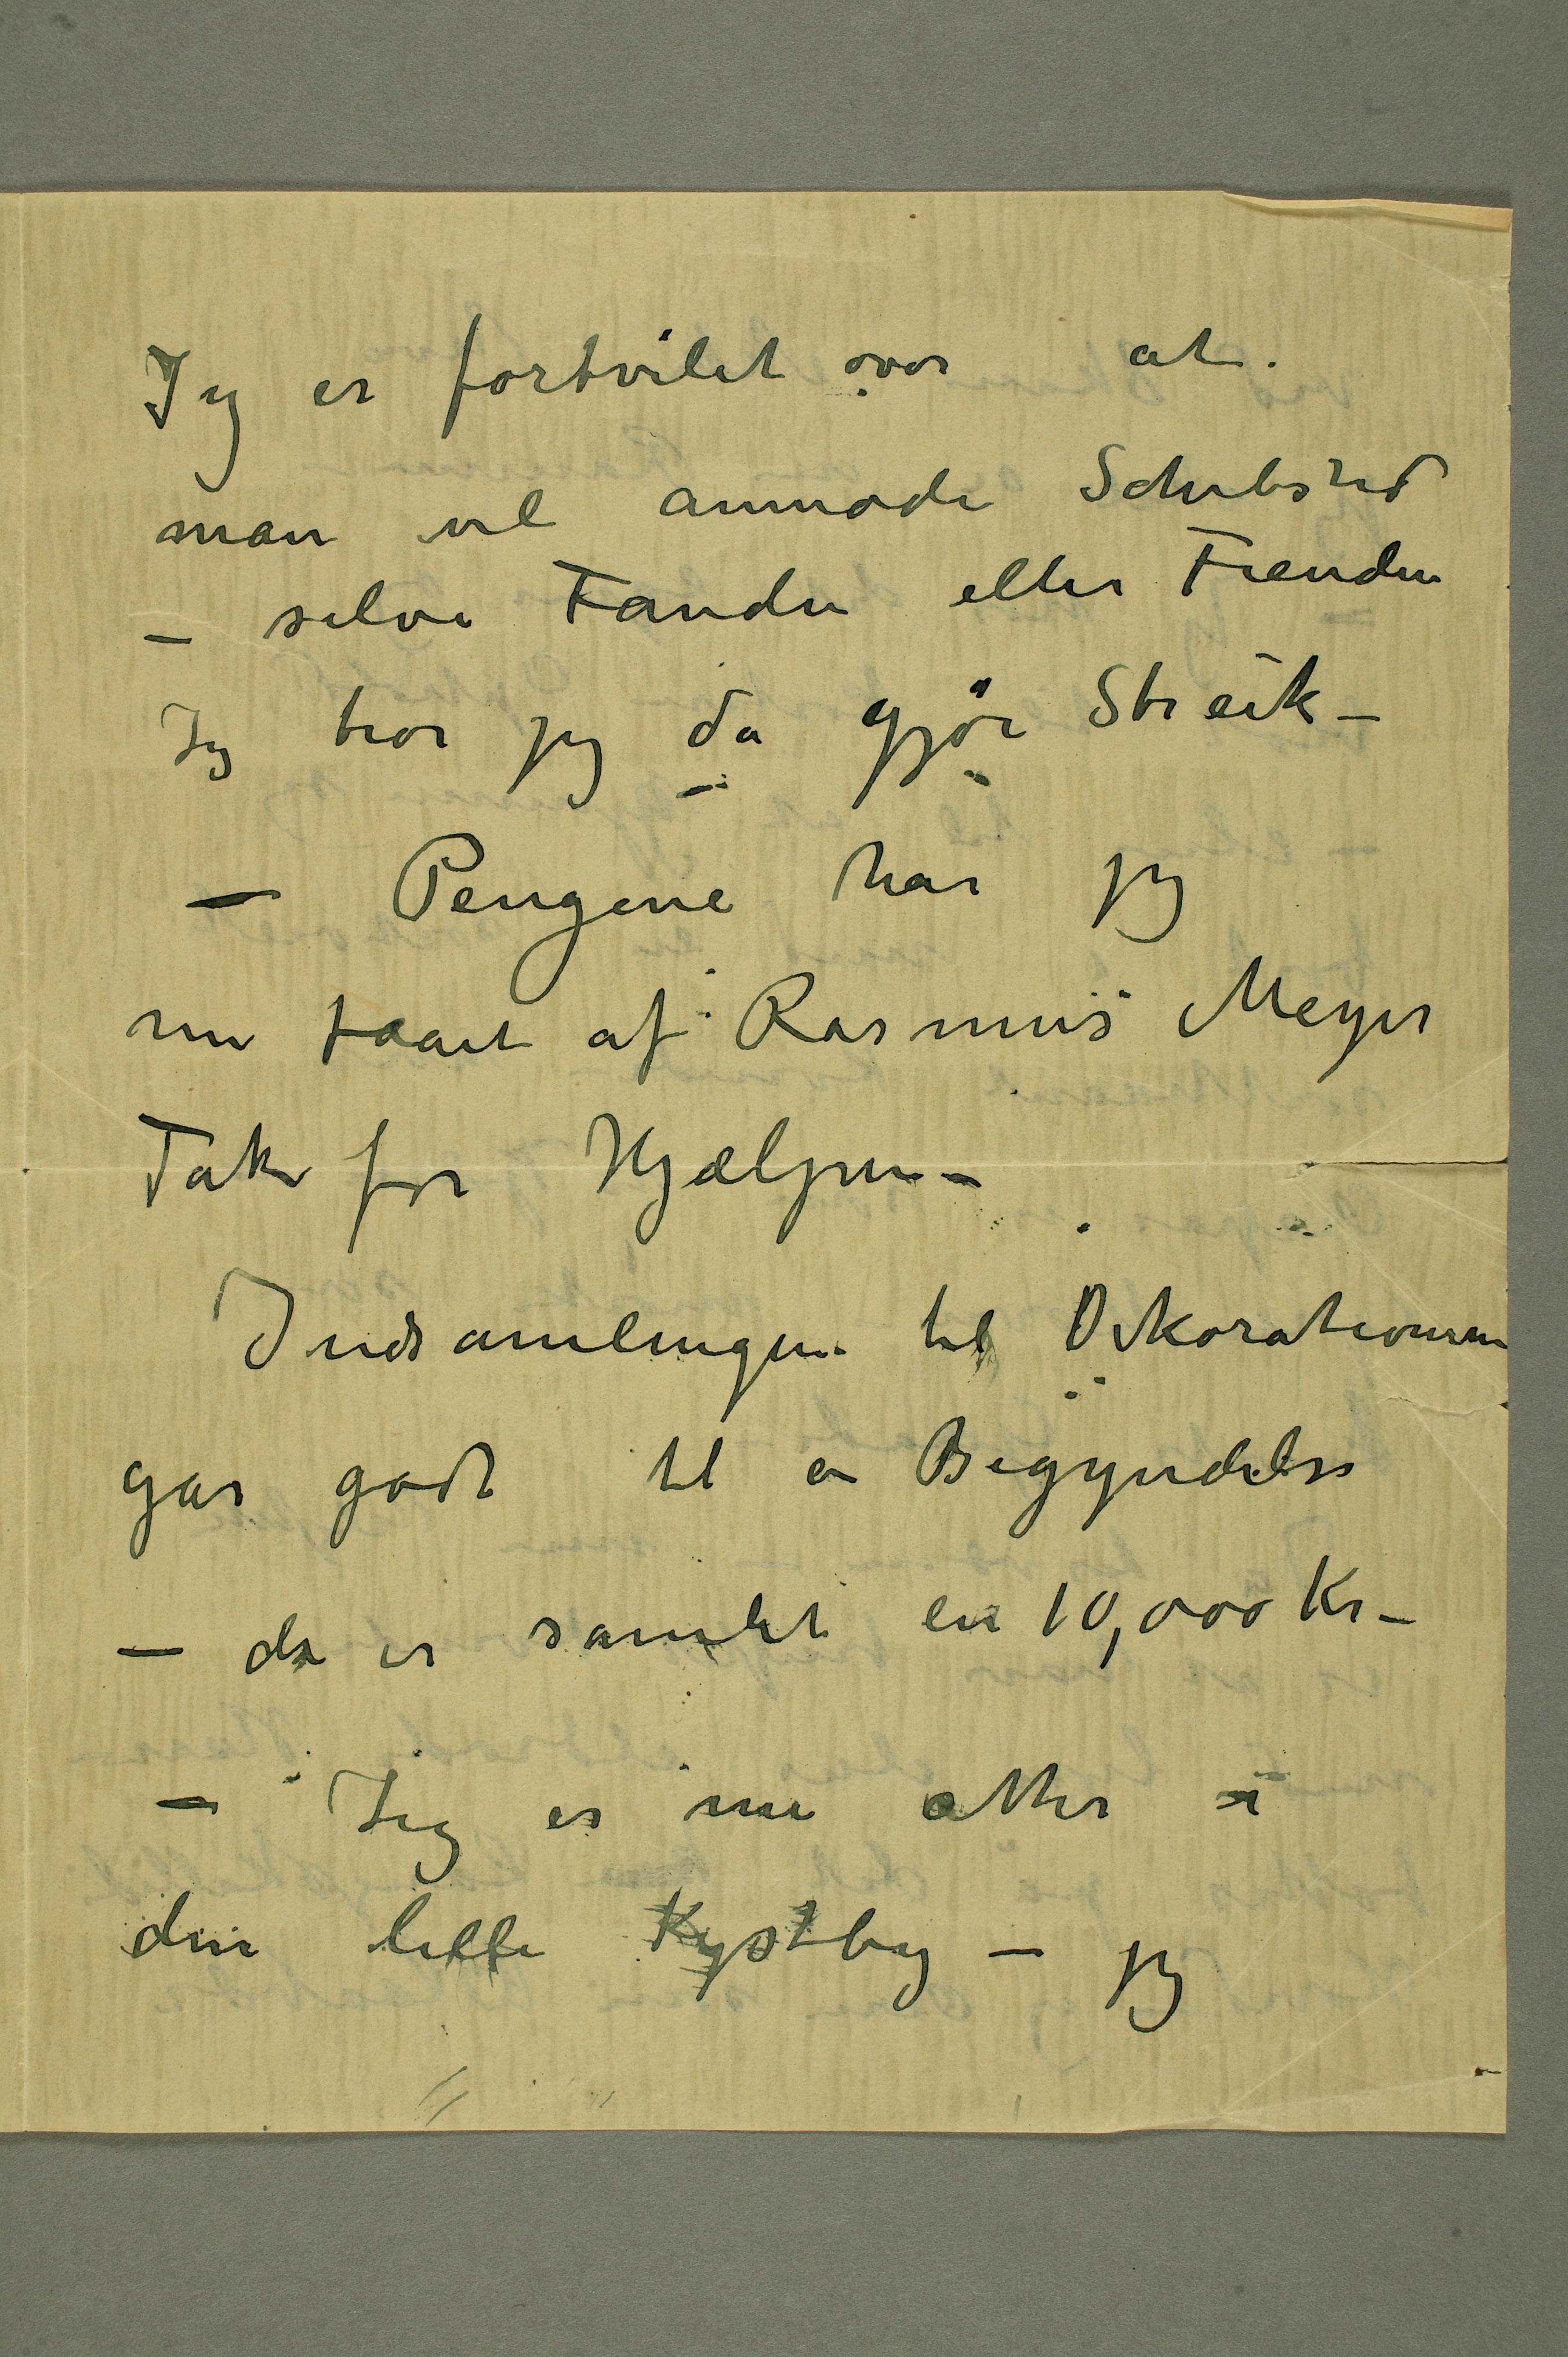 Jeg er fortvilet over at
man vil anmode Schibsted
– selve Fanden eller Fienden
Jeg tror jeg da gjør Streik –
– Pengene har jeg
nu faaet af Rasmus Meyer
Tak for Hjælpen –
Indsamlingen til Dekorationerne
går godt til en Begyndelse
– der er samlet en 10,000 Kr –
– Jeg er nu atter i
den lille Kystby – jeg